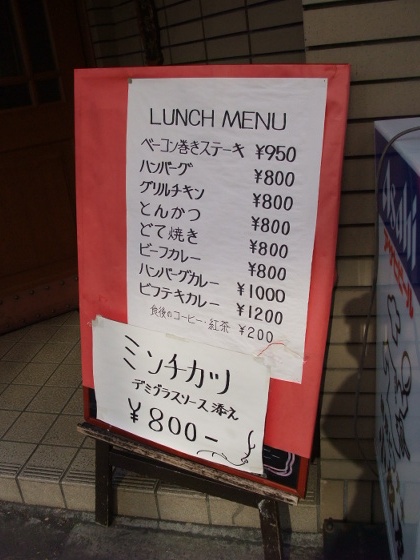 LUNCH MENU
ベーコン巻きステーキ ¥950
ハンバーグ ¥800
グリルチキン ¥800
とんかつ ¥800
どて焼き ¥800
ビーフカレー ¥800
ハンバーグカレー ¥1000
ビフテキカレー ¥1200
食後のコーヒー・紅茶 ¥200
ミンチカツ
デミグラスソース添え
¥800-